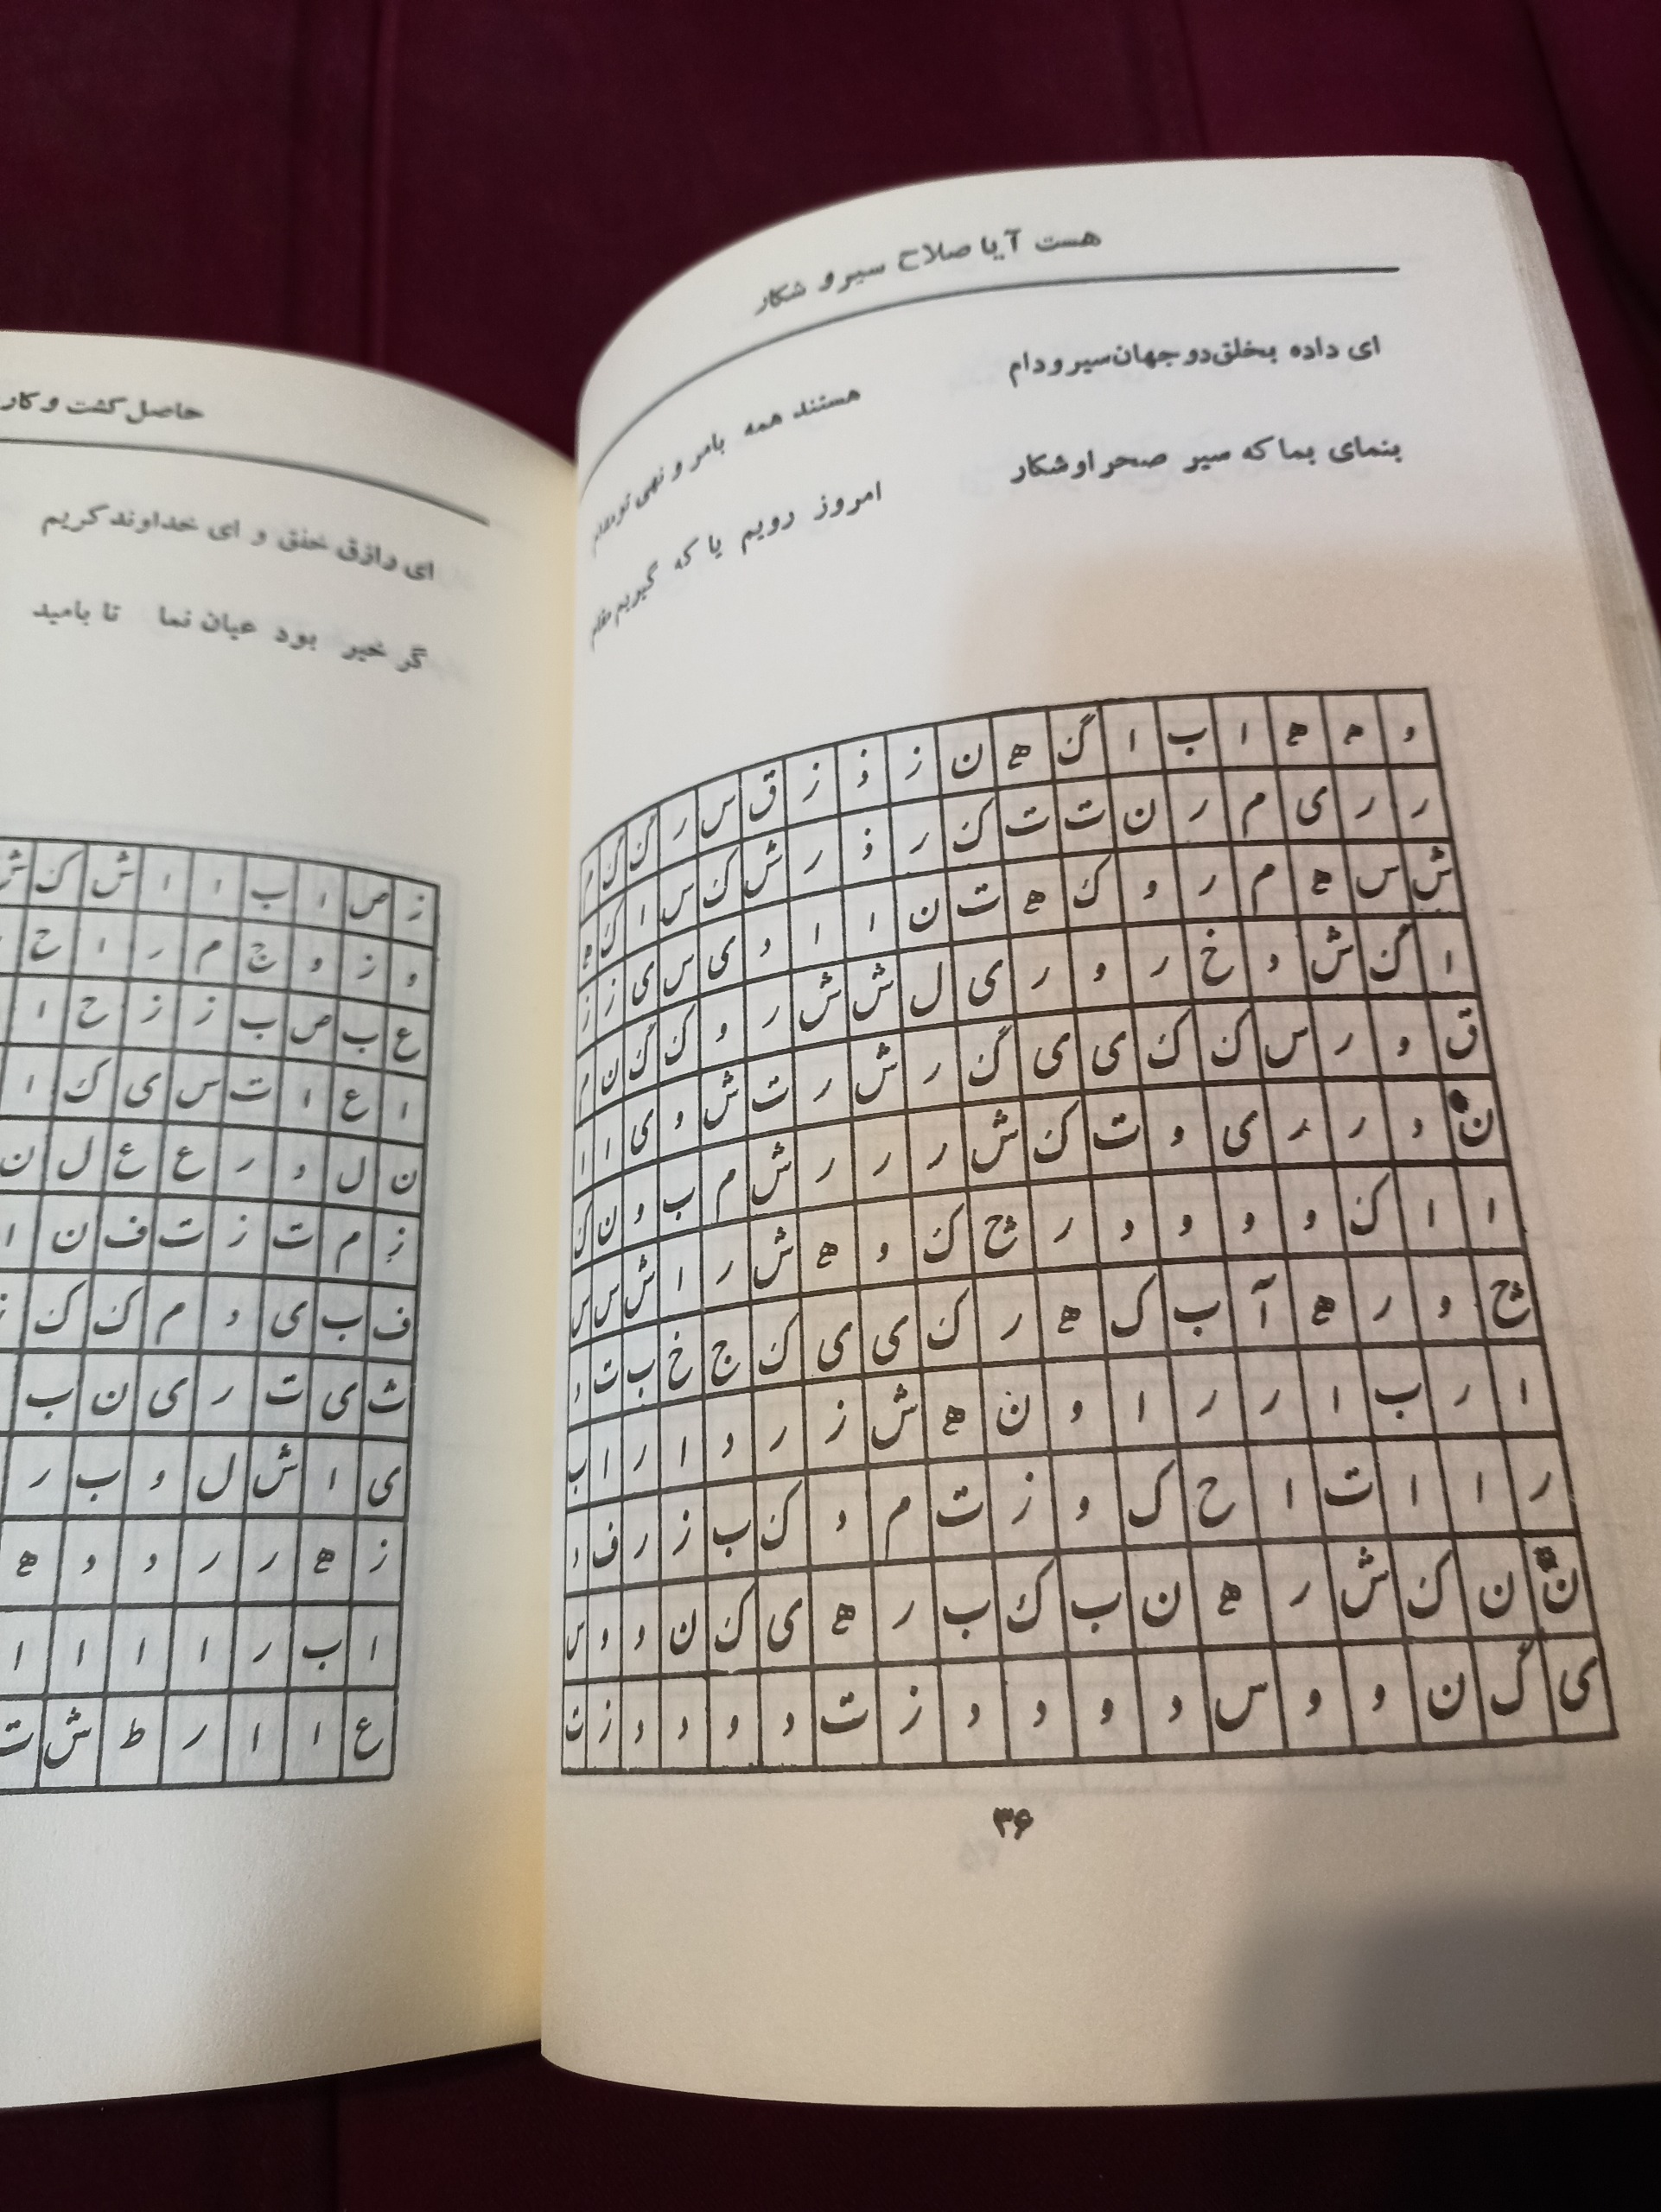 هست آیا صلاح سیر و شکار
ای داده بخلق دو جهان سیر و دام هستند همه بامر و نهی تو مدام
بنمای بما که سیر صحر او شکار امروز رویم یا که گیریم مقام
و ه ه ا ب ا گ ه ن ز ذ ز ق س ر گ گ م
ر ر ی م ر ن ت ت ک ر ذ ر ش ک س ا ک ه
ش س ه م ر و ک ه ت ن ا ا د ی س ی ز ز
ا گ ش د خ ر و ر ی ل ش ش ر و ک گ ن م
ق و ر س ک ک ی ی گ ر ش ر ت ش و ی ا ا
ن د ر ر ی و ت ک ش ر ر ر ش م ب و ن ک
ا ا ک و و و د ر چ ک و ه ش ر ا ش س س
چ و ر ه آ ب ک ه ر ک ی ی ک ج خ ب ت د
ا ر ب ا ر ر ا و ن ه ش ز ر د ا ر ا ب
ر ا ا ت ا ح ک و ز ت م د ک ب ز ر ف د
ن ن ک ش ر ه ن ب ک ب ر ه ی ک ن د و س
ی گ ن و و س د و د د ز ت د و د د ز ت
۳۶
حاصل کشت و کار
ای رازق خلق و ای خداوند کریم
گر خیر بود عیان نما تا بامید
ز ص ا ب ا ا ش ک ش
و ز و ج م ر ا ح
ع ب ص ب ز ز ح ا
ا ع ا ت س ی ک ا
ن ل و ر ع ع ل ن
ز م ت ز ت ف ن ا
ف ب ی د م ک ک
ث ی ت ر ی ن ب
ی ا ش ل و ب ر
ز ه ر ر د و ه
ا ب ر ا ا ا ا
ع ا ا ر ط ش ت